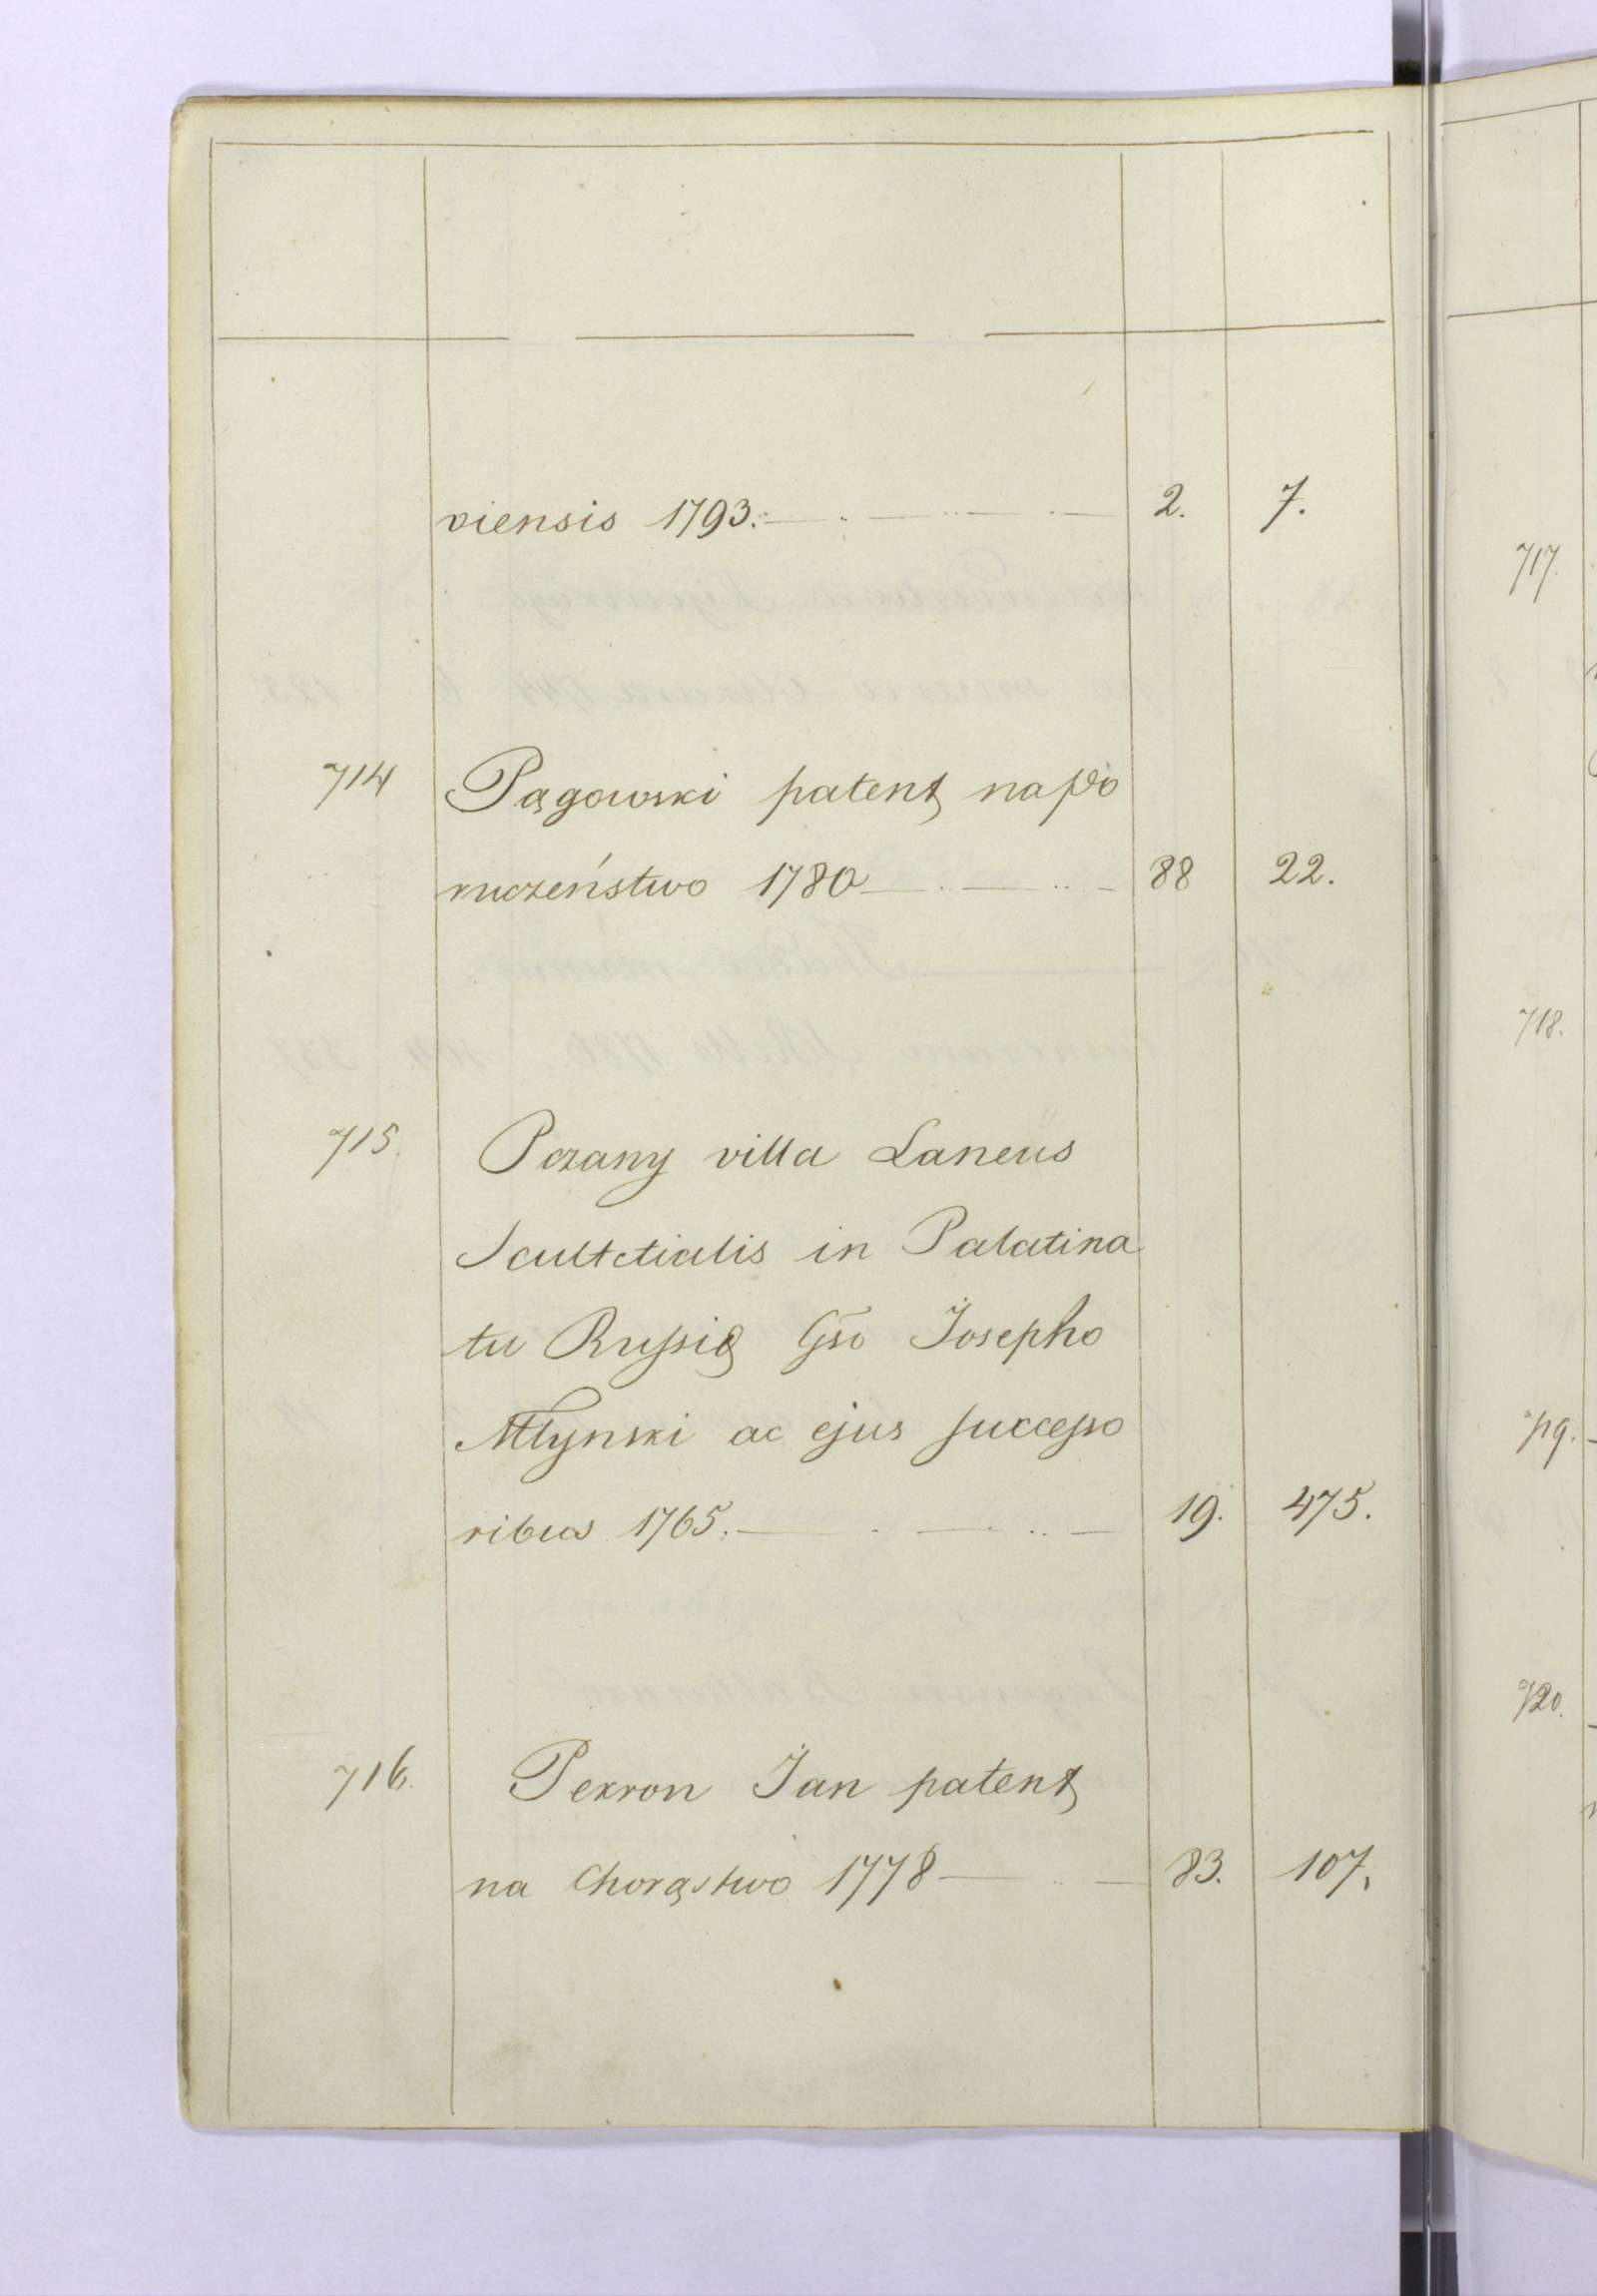 viensis 1793. 2. 7.
714 Pągowski patent na po
ruczeństwo 1780 88 22.
715. Pczany villa Laneus
Scultetialis in Palatina
tu Russiæ Gso Josepho
Młynski ac ejus successo
ribus 1765. 19. 475.
716. Pekron Jan patent
na Chorąstwo 1778 83. 107.
717.
718.
719.
720.